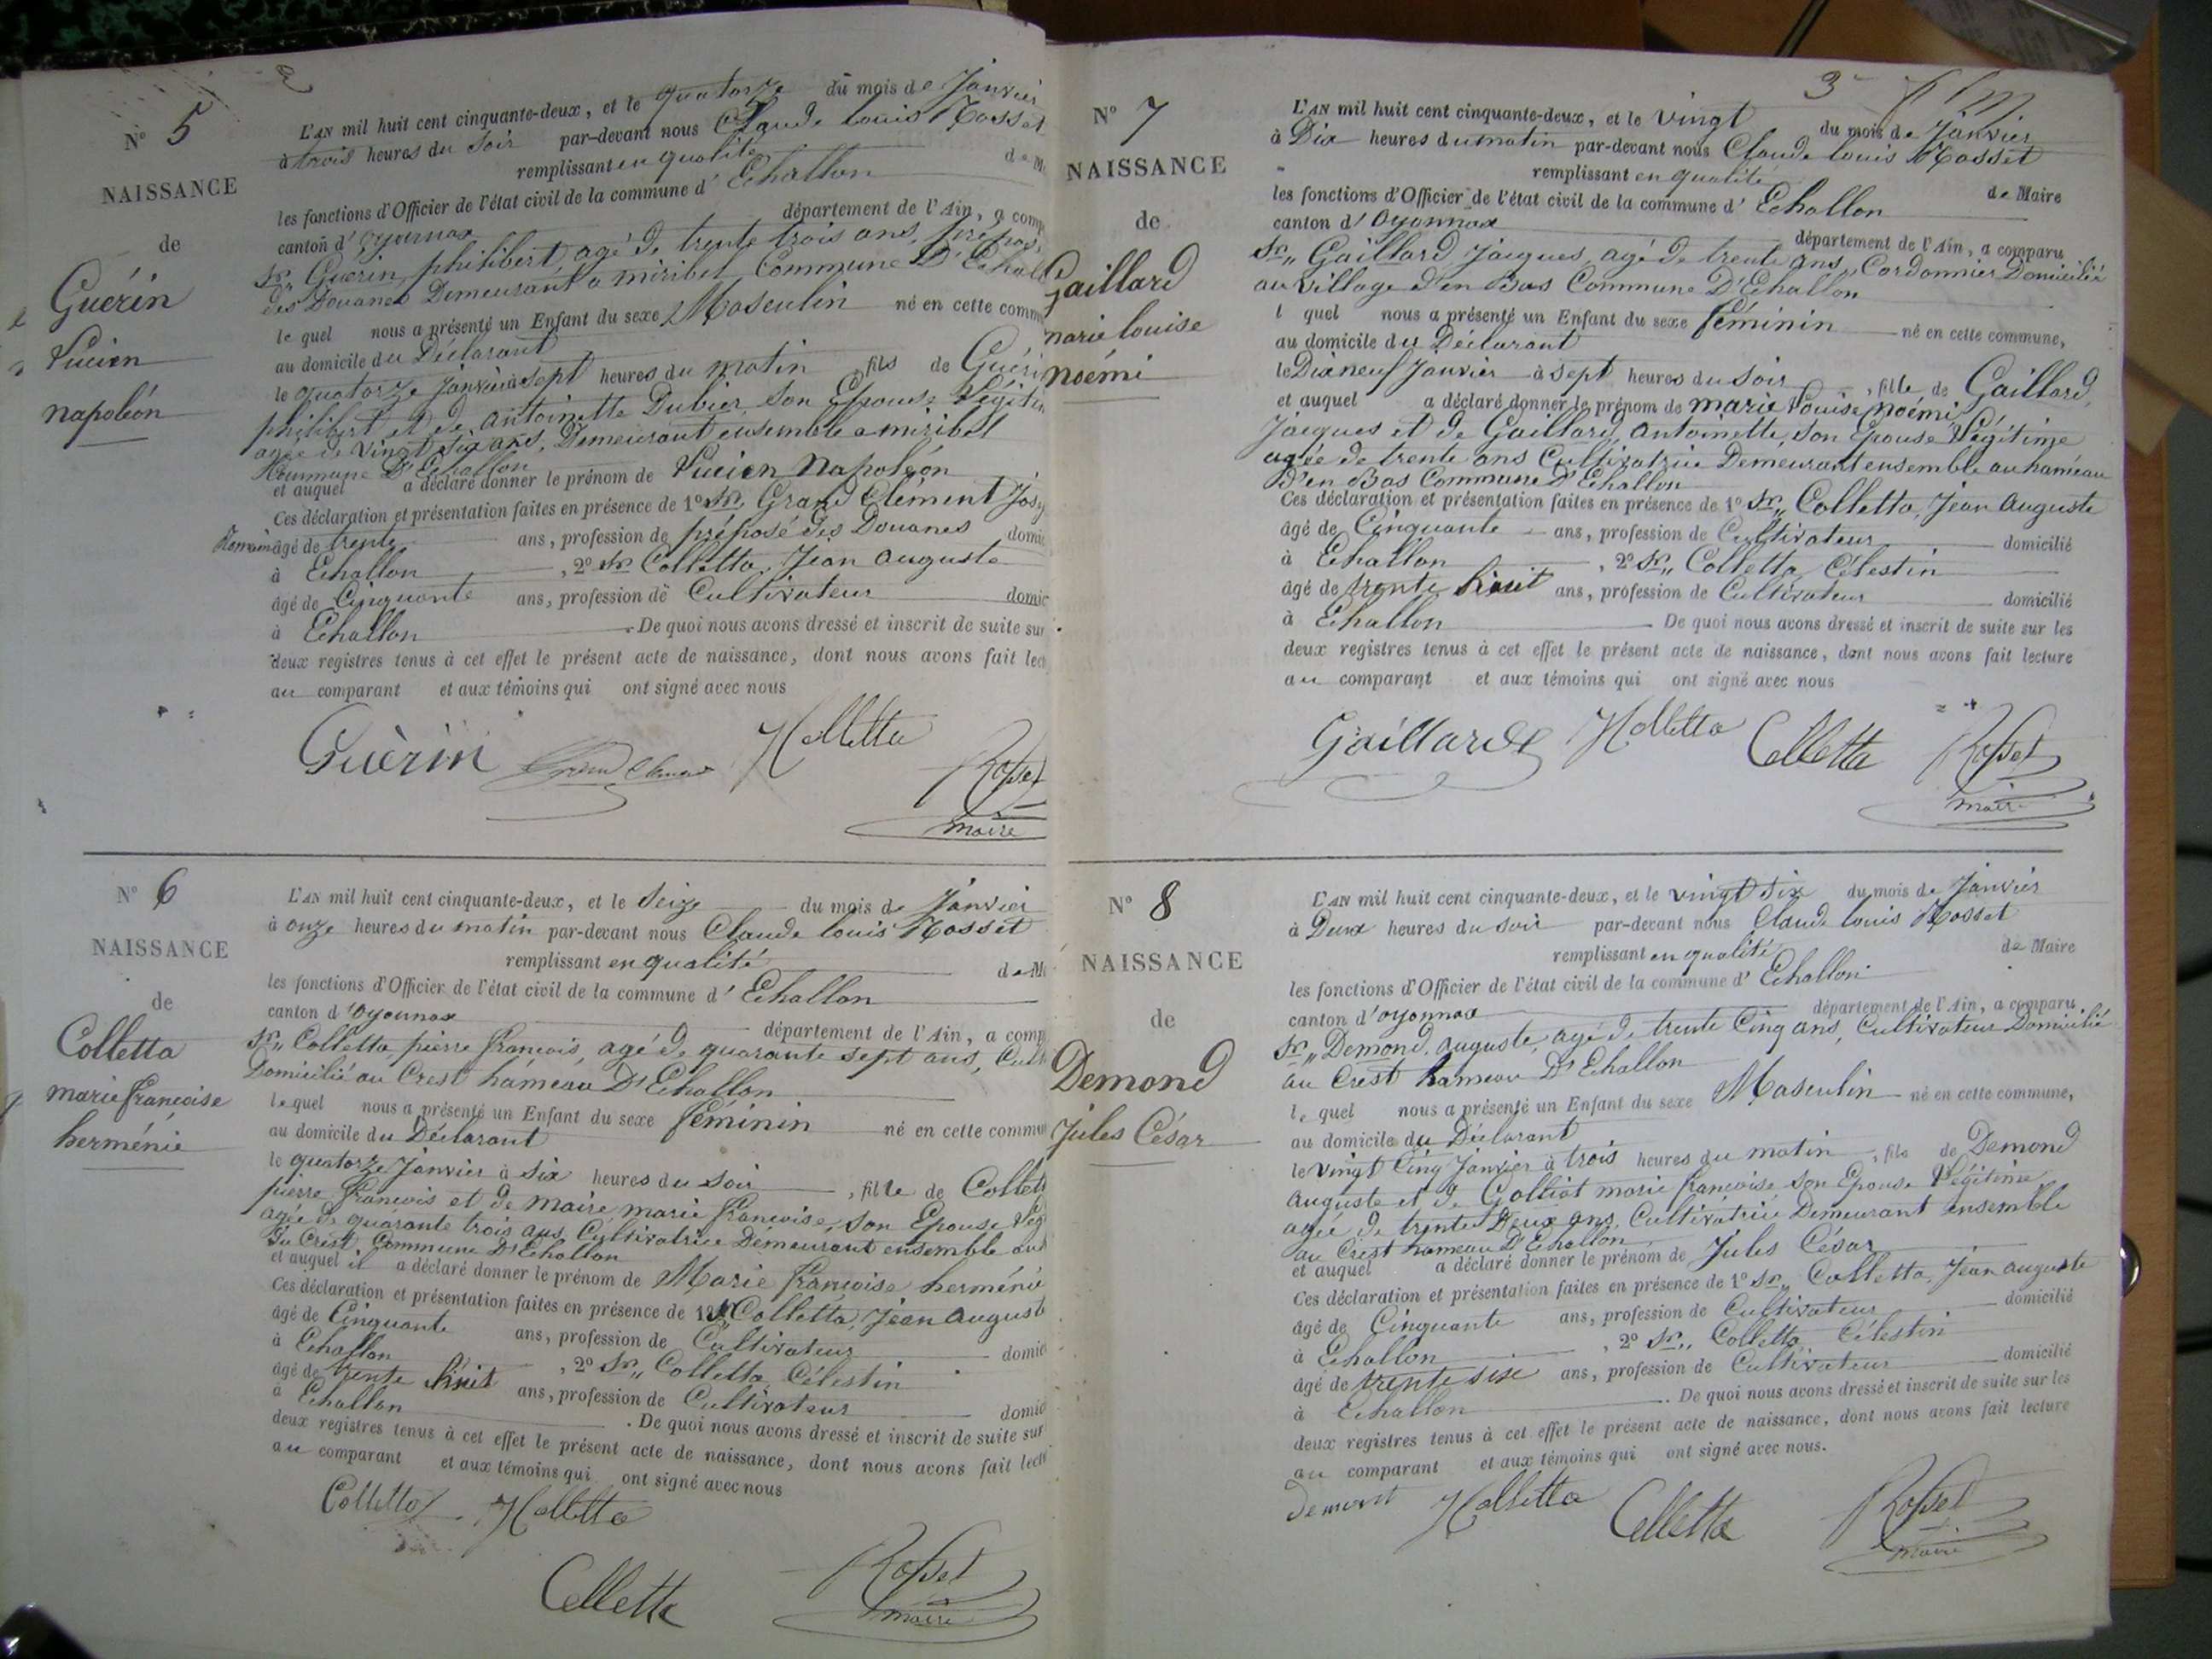 2
N° 5
NAISSANCE
de
Guérin
Lucien
napoléon
L'AN mil huit cent cinquante-deux, et le quatorze du mois de Janvier
à trois heures du Soir par-devant nous Claude louis Rosset
remplissant en qualité de M
les fonctions d'Officier de l'état civil de la commune d' Echallon
canton d' oyonnax département de l'Ain, a comp
Sr. Guérin philibert, agé de trente trois ans, prépos
des Douanes Demeurant a miribel Commune D'Echall
le quel nous a présenté un Enfant du sexe Masculin né en cette comm
au domicile du Déclarant
le quatorze Janvier à Sept heures du matin fils de Guéri
philibert et de antoinette Dubier Son Epouse Légitim
agée de Vingt six ans, Demeurant ensemble a miribel
Commune D'Echallon
et auquel a déclaré donner le prénom de Lucien Napoléon
Ces déclaration et présentation faites en présence de 1° Sr. Grand Clément Jos
Romain âgé de trente ans, profession de préposé des Douanes domic
à Echallon , 2° Sr. Colletta, Jean auguste
âgé de Cinquante ans, profession de Cultivateur domic
à Echallon . De quoi nous avons dressé et inscrit de suite sur
deux registres tenus à cet effet le présent acte de naissance, dont nous avons fait lec
au comparant et aux témoins qui ont signé avec nous
Guèrin Colletta
Rosset
maire
N° 6
NAISSANCE
de
Colletta
marie françoise
herménie
L'AN mil huit cent cinquante-deux, et le Seize du mois de Janvier
à onze heures du matin par-devant nous Claude louis Rosset
remplissant en qualité de M
les fonctions d'Officier de l'état civil de la commune d' Echallon
canton d'oyonnax département de l'Ain, a comp
Sr. Colletta pierre françois, agé de quarante sept ans, Cult
Domicilié au Crest hameau D'Echallon
le quel nous a présenté un Enfant du sexe féminin né en cette commu
au domicile du Déclarant
le quatorze Janvier à Six heures du Soir , fille de Collett
pierre françois et de maire marie françoise, son Epouse Lég
agée de quarante trois ans Cultivatrice Demeurant ensemble au
du Crest Commune D'Echallon
et auquel il a déclaré donner le prénom de Marie françoise herménie
Ces déclaration et présentation faites en présence de 1° Sr Colletta, Jean August
âgé de Cinquante ans, profession de Cultivateur domic
à Echallon , 2° Sr. Colletta Célestin
âgé de trente huit ans, profession de Cultivateur domic
à Echallon . De quoi nous avons dressé et inscrit de suite sur
deux registres tenus à cet effet le présent acte de naissance, dont nous avons fait lect
au comparant et aux témoins qui ont signé avec nous
Colletta Colletta
Colletta Rosset
maire
3
N° 7
NAISSANCE
de
Gaillard
marie louise
noémi
L'AN mil huit cent cinquante-deux, et le vingt du mois de Janvier
à Dix heures du matin par-devant nous Claude louis Rosset
remplissant en qualité de Maire
les fonctions d'Officier de l'état civil de la commune d' Echallon
canton d' oyonnax département de l'Ain, a comparu
Sr. Gaillard Jacques, agé de trente ans, Cordonnier Domicilié
au Village d'en Bas Commune D'Echallon
l quel nous a présenté un Enfant du sexe féminin né en cette commune,
au domicile du Déclarant
le Dix neuf Janvier à Sept heures du Soir , fille de Gaillard,
et auquel a déclaré donner le prénom de marie Louise noémi
Jacques et de Gaillard, antoinette, son Epouse Légitime
agée de trente ans Cultivatrice Demeurant ensemble au hameau
D'en Bas Commune D'Echallon
Ces déclaration et présentation faites en présence de 1° Sr. Colletta, Jean Auguste
âgé de Cinquante ans, profession de Cultivateur domicilié
à Echallon , 2° Sr. Colletta Célestin
âgé de trente huit ans, profession de Cultivateur domicilié
à Echallon . De quoi nous avons dressé et inscrit de suite sur les
deux registres tenus à cet effet le présent acte de naissance, dont nous avons fait lecture
au comparant et aux témoins qui ont signé avec nous
Gaillard Colletta Colletta Rosset
maire
N° 8
NAISSANCE
de
Demond
Jules César
L'AN mil huit cent cinquante-deux, et le vingt Six du mois de Janvier
à Deux heures du Soir par-devant nous Claude louis Rosset
remplissant en qualité de Maire
les fonctions d'Officier de l'état civil de la commune d' Echallon
canton d'oyonnax département de l'Ain, a comparu
Sr. Demond, auguste, agé de trente Cinq ans, Cultivateur Domicilié
au Crest hameau D'Echallon
le quel nous a présenté un Enfant du sexe Masculin né en cette commune,
au domicile du Déclarant
le vingt Cinq Janvier à trois heures du matin , fils de Demond
auguste et de Golliat marie françoise son Epouse Légitime
agée de trente Deux ans Cultivatrice Demeurant ensemble
au Crest hameau D'Echallon
et auquel a déclaré donner le prénom de Jules César
Ces déclaration et présentation faites en présence de 1° Sr. Colletta, Jean auguste
âgé de Cinquante ans, profession de Cultivateur domicilié
à Echallon , 2° Sr. Colletta, Célestin
âgé de trente six ans, profession de Cultivateur domicilié
à Echallon . De quoi nous avons dressé et inscrit de suite sur les
deux registres tenus à cet effet le présent acte de naissance, dont nous avons fait lecture
au comparant et aux témoins qui ont signé avec nous.
Demont Colletta Colletta Rosset
maire